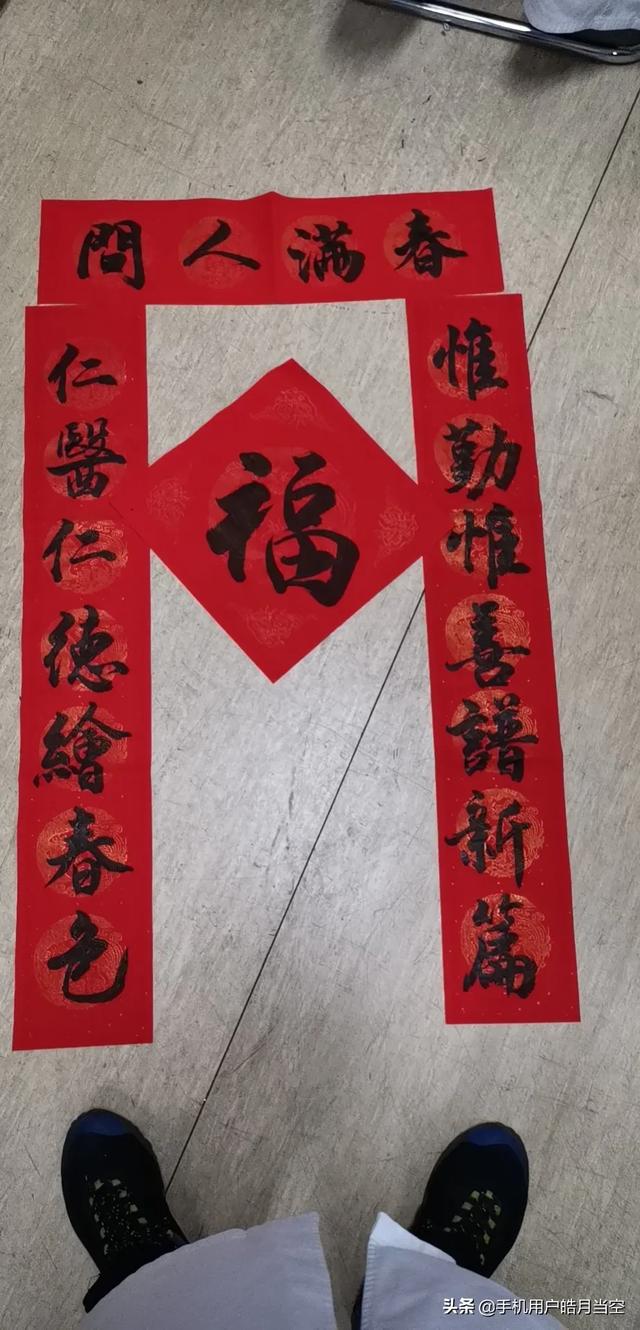 春滿人間
惟勤惟善譜新篇
仁醫仁德繪春色
福
头条 @手机用户皓月当空